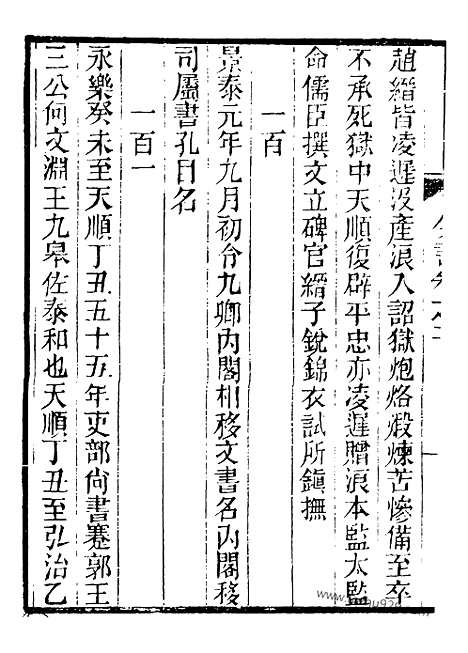 趙縉皆凌遲没產浪入詔獄炮烙煅煉苦慘備至卒
不承死獄中天順復辟平忠亦凌遲贈浪本監太監
命儒臣撰文立碑官縉子銳錦衣試所鎮撫
一百
景泰元年九月初令九卿内閣相移文書名内閣移
司屬書孔目名
一百一
永樂癸未至天順丁丑五十五年吏部尚書蹇郭王
三公何文淵王九皋佐泰和也天順丁丑至弘治乙